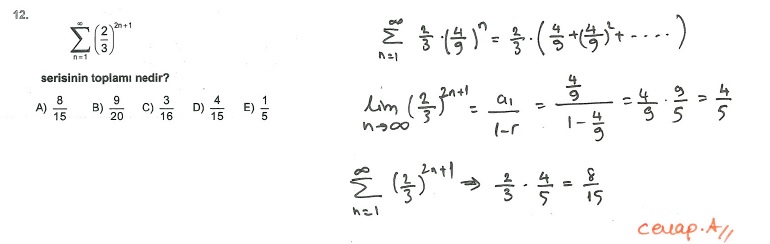 12.
∞
∑ (2/3)^(2n+1)
n=1
serisinin toplamı nedir?
A) 8/15 B) 9/20 C) 3/16 D) 4/15 E) 1/5
∞
∑ 2/3 · (4/9)^n = 2/3 · (4/9 + (4/9)^2 + ....)
n=1
lim (2/3)^(2n+1) = a1/(1-r) = (4/9)/(1 - 4/9) = 4/9 · 9/5 = 4/5
n→∞
∞
∑ (2/3)^(2n+1) ⇒ 2/3 · 4/5 = 8/15
n=1
cevap. A //